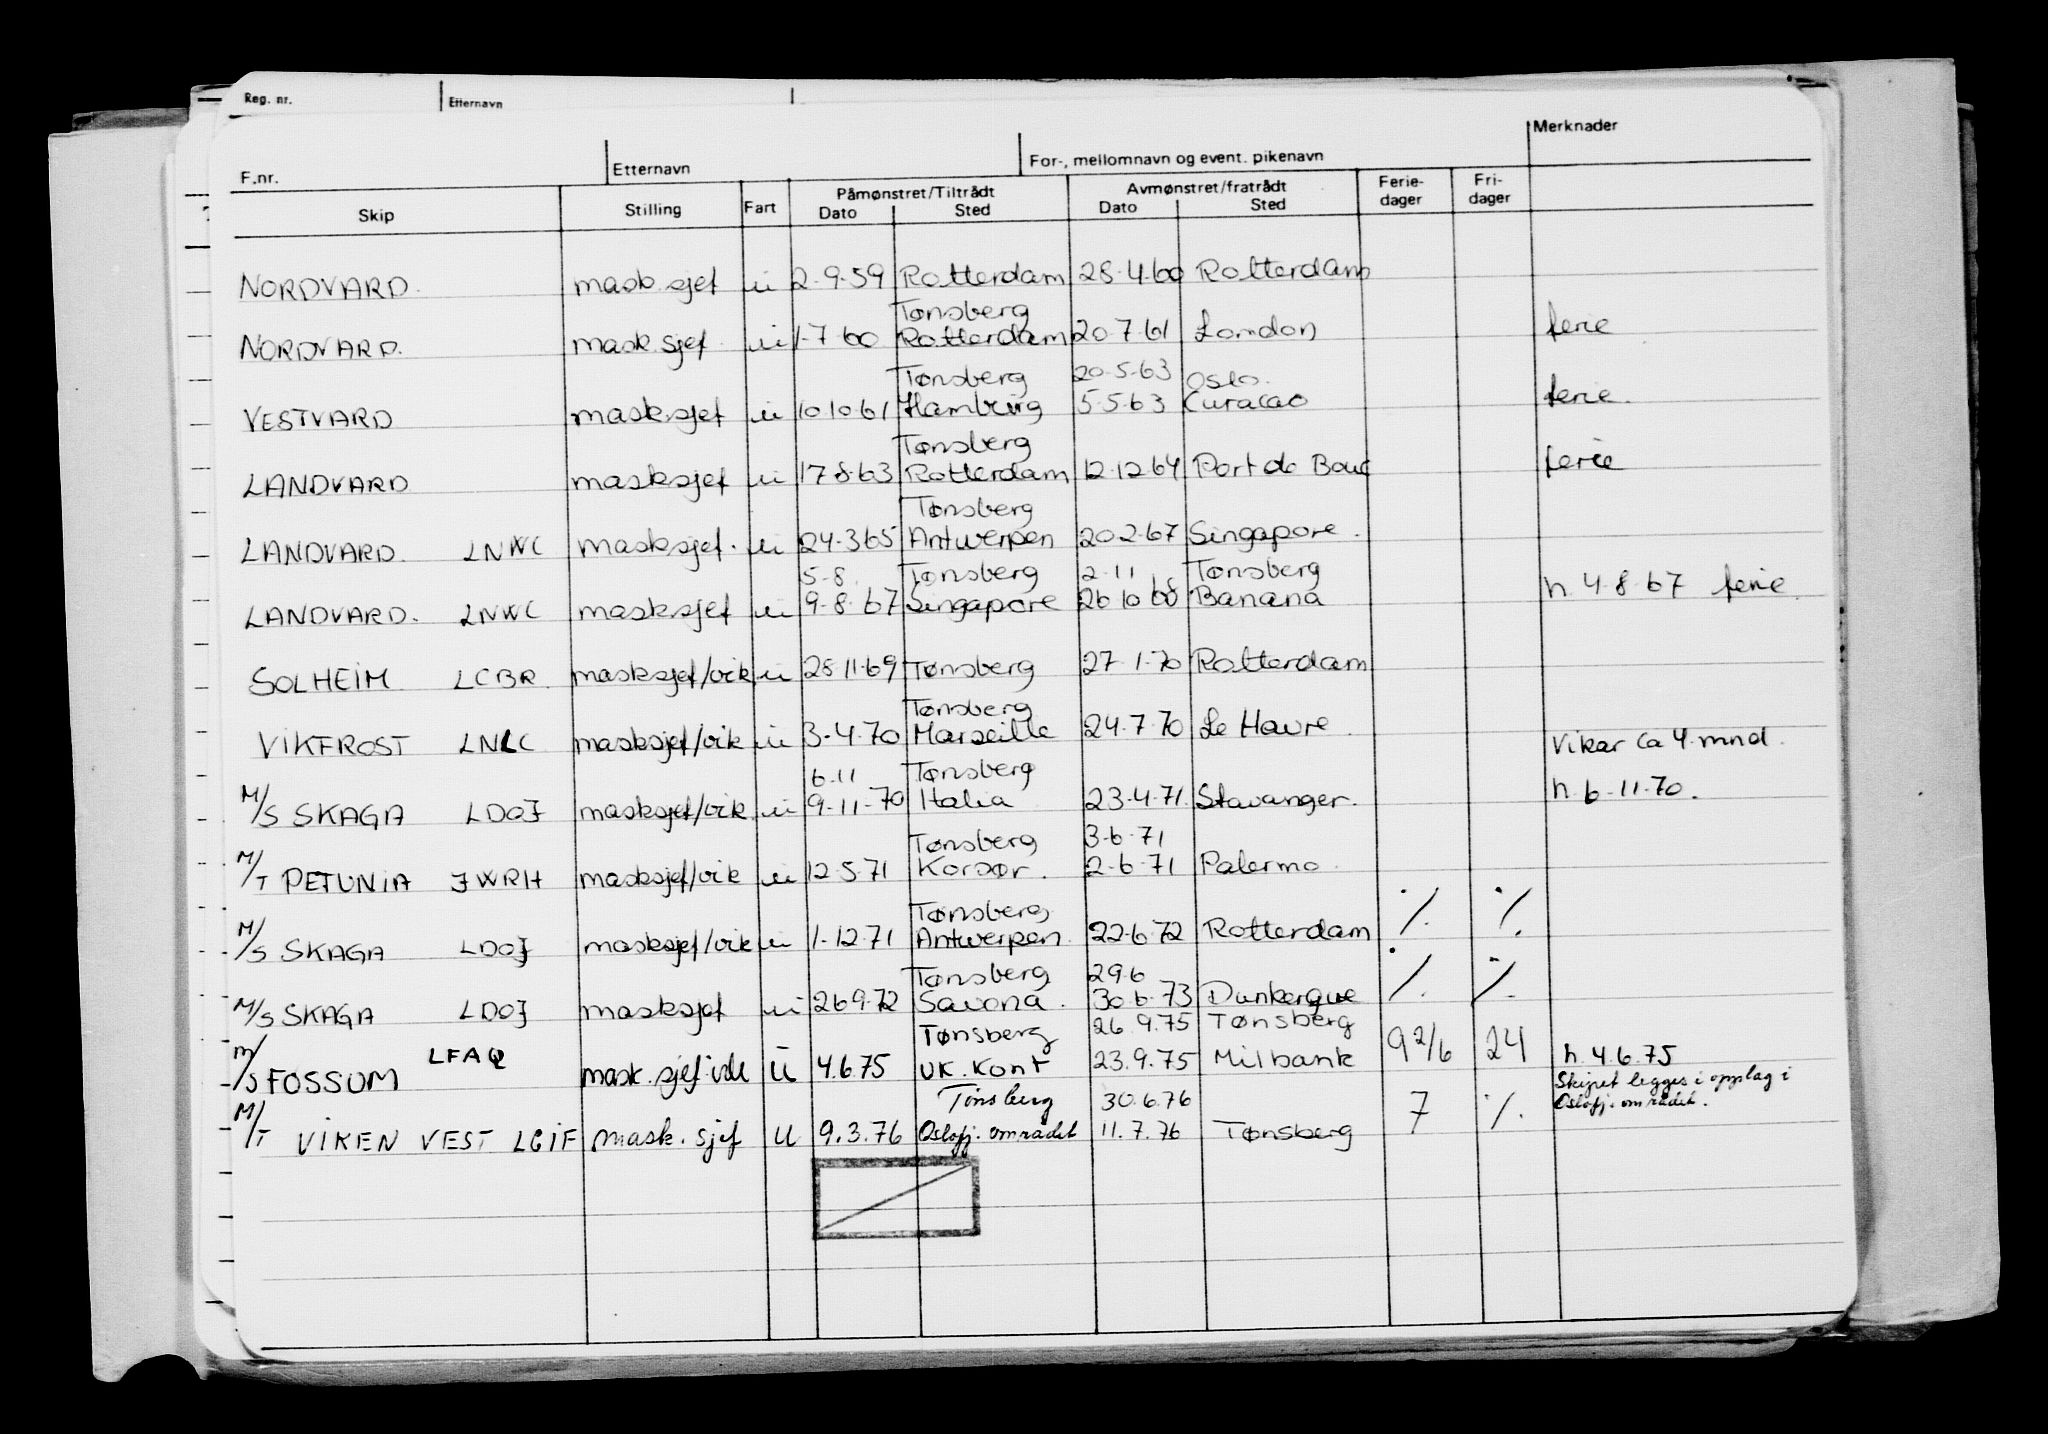 Reg. nr. Etternavn
Merknader
F.nr. Etternavn For-, mellomnavn og event. pikenavn
Påmønstret/Tiltrådt Avmønstret/fratrådt Ferie- Fri-
Skip Stilling Fart Dato Sted Dato Sted dager dager
NORDVARD. mask.sjef u 2-9-59 Rotterdam 28-4-60 Rotterdam
Tønsberg
NORDVARD. mask.sjef u 1-7 60 Rotterdam 20-7-61 London ferie
Tønsberg 20-5-63 Oslo.
VESTVARD mask.sjef u 10 10 61 Hamburg 5-5-63 Curacao ferie.
Tønsberg
LANDVARD mask.sjef u 17 8-63 Rotterdam 12-12 64 Port de Bouc ferie
Tønsberg
LANDVARD. LNWC mask.sjef. u 24-3 65 Antwerpen 20 2-67 Singapore.
5-8. Tønsberg 2-11 Tønsberg
LANDVARD. LNWC mask.sjef u 9-8-67 Singapore 26 10 68 Banana h 4-8-67 ferie.
SOLHEIM LCBR. masksjef/vik u 28 11-69 Tønsberg 27-1-70 Rotterdam
Tønsberg
VIKFROST LNLC masksjef/vik u 3-4-70 Marseille 24-7-70 Le Havre. Vikar ca 4 mnd.
6-11 Tønsberg
M/S SKAGA LDOJ masksjef/vik u 9-11-70 Italia 23-4-71. Stavanger. h. 6-11-70.
Tønsberg 3-6-71
M/T PETUNIA JWRH masksjef/vik u 12-5-71 Korsør. 2-6-71 Palermo.
Tønsberg
M/S SKAGA LDOJ masksjef/vik u 1-12-71 Antwerpen. 22-6-72 Rotterdam ٪ ٪
Tønsberg 29.6
M/S SKAGA LDOJ masksjef u 26 9-72 Savona. 30-6-73 Dunkerque ٪ ٪
Tønsberg 26.9.75 Tønsberg
M/S FOSSUM LFAQ mask.sjef vik ū 4.6 75 UK.Kont 23.9.75 Milbank 9 2/6 24 h. 4.6.75
Tønsberg 30.6.76 Skipet legges i opplag i
M/T VIKEN VEST LGIF mask.sjef u 9.3.76 Oslofj. området 11.7.76 Tønsberg 7 ٪ Oslofj. området.